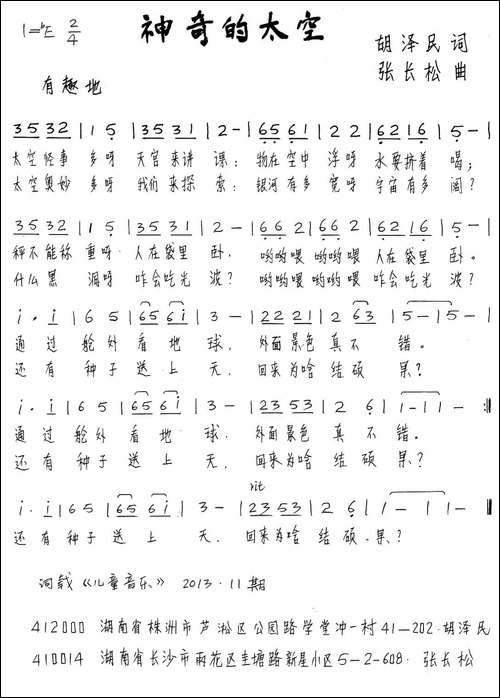 1=♭E 2/4 神奇的太空
胡泽民词
张长松曲
有趣地
3532 | 1 5 | 35 31 | 2 - | 65 61 | 2 2 | 62 16 | 5 - |
太空怪事 多呀 天宫来讲 课; 物在空中 浮呀 水要挤着 喝;
太空奥妙 多呀 我们来探 索: 银河有多 宽呀 宇宙有多 阔?
35 32 | 1 5 | 35 31 | 2 - | 662 | 662 | 62 16 | 5 - |
秤不能称 重呀 人在袋里 卧. 哟哟喂 哟哟喂 人在袋里 卧.
什么黑 洞呀 咋会吃光 波? 哟哟喂 哟哟喂 咋会吃光 波?
i . i | 6 5 | 65 6i | 3 - | 22 21 | 2 63 | 5 - | 5 - |
通 过 舱外 看 地 球, 外面景色 真 不 错。
还 有 种子 送 上 天, 回来为啥 结 硕 果?
i . i | 6 5 | 65 6i | 3 - | 23 53 | 2 6 | 1 - | 1 - :‖
通 过 舱外 看 地 球. 外面景色 真 不 错.
还 有 种子 送 上 天, 回来为啥 结 硕 果?
rit
i . i | 6 5 | 65 6i | 3 - | 23 53 | 2 6 | 1 - | 1 - ‖
还 有 种子 送 上 天. 回来为啥 结 硕. 果?
词载《儿童音乐》 2013·11期
412000 湖南省株洲市芦淞区公园路学堂冲一村41—202·胡泽民
410014 湖南省长沙市雨花区圭塘路新星小区5-2-608· 张长松